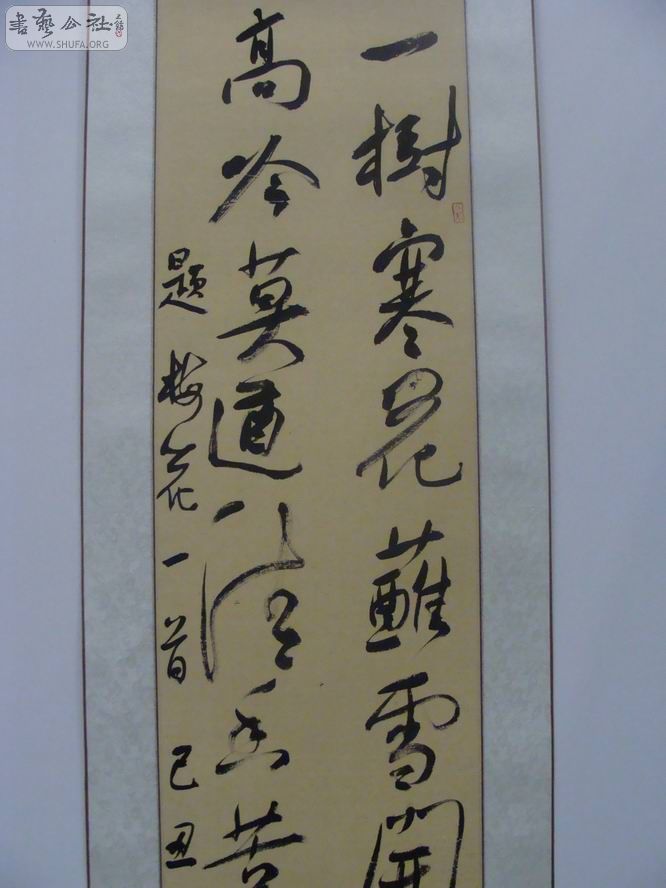 書藝公社
WWW.SHUFA.ORG
一樹寒花蘸雪開
高吟莫道清香苦
题梅花一首 己丑